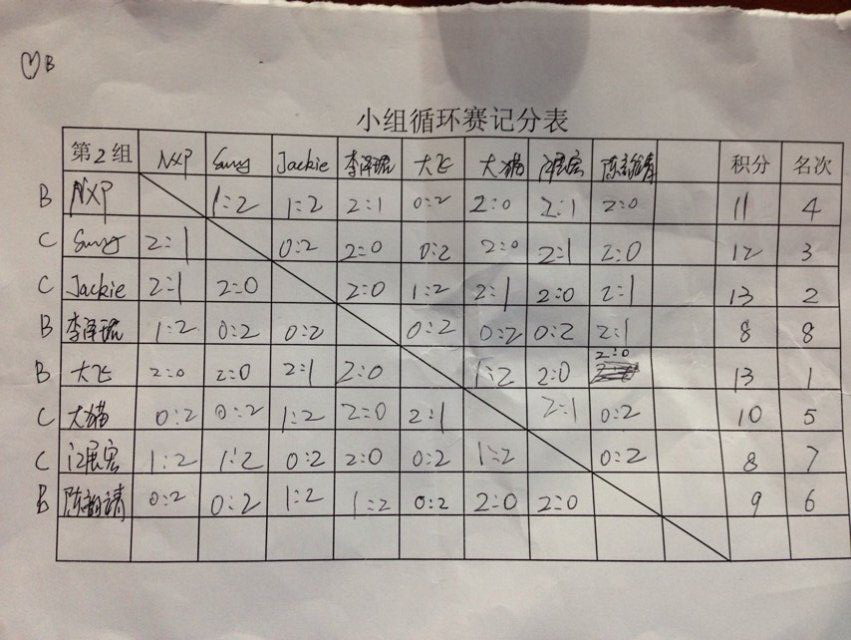 ♡B
小组循环赛记分表
第2组 NXP Sunny Jackie 李泽琨 大飞 大猫 汪展宏 积分 名次
B NXP 1:2 1:2 2:1 0:2 2:0 2:1 2:0 11 4
C Sunny 2:1 0:2 2:0 0:2 2:0 2:1 2:0 12 3
C Jackie 2:1 2:0 2:0 1:2 2:1 2:0 2:1 13 2
B 李泽琨 1:2 0:2 0:2 0:2 0:2 0:2 2:1 8 8
B 大飞 2:0 2:0 2:1 2:0 1:2 2:0 2:0 13 1
C 大猫 0:2 0:2 1:2 2:0 2:1 2:1 0:2 10 5
C 汪展宏 1:2 1:2 0:2 2:0 0:2 1:2 0:2 8 7
B 0:2 0:2 1:2 1:2 0:2 2:0 2:0 9 6